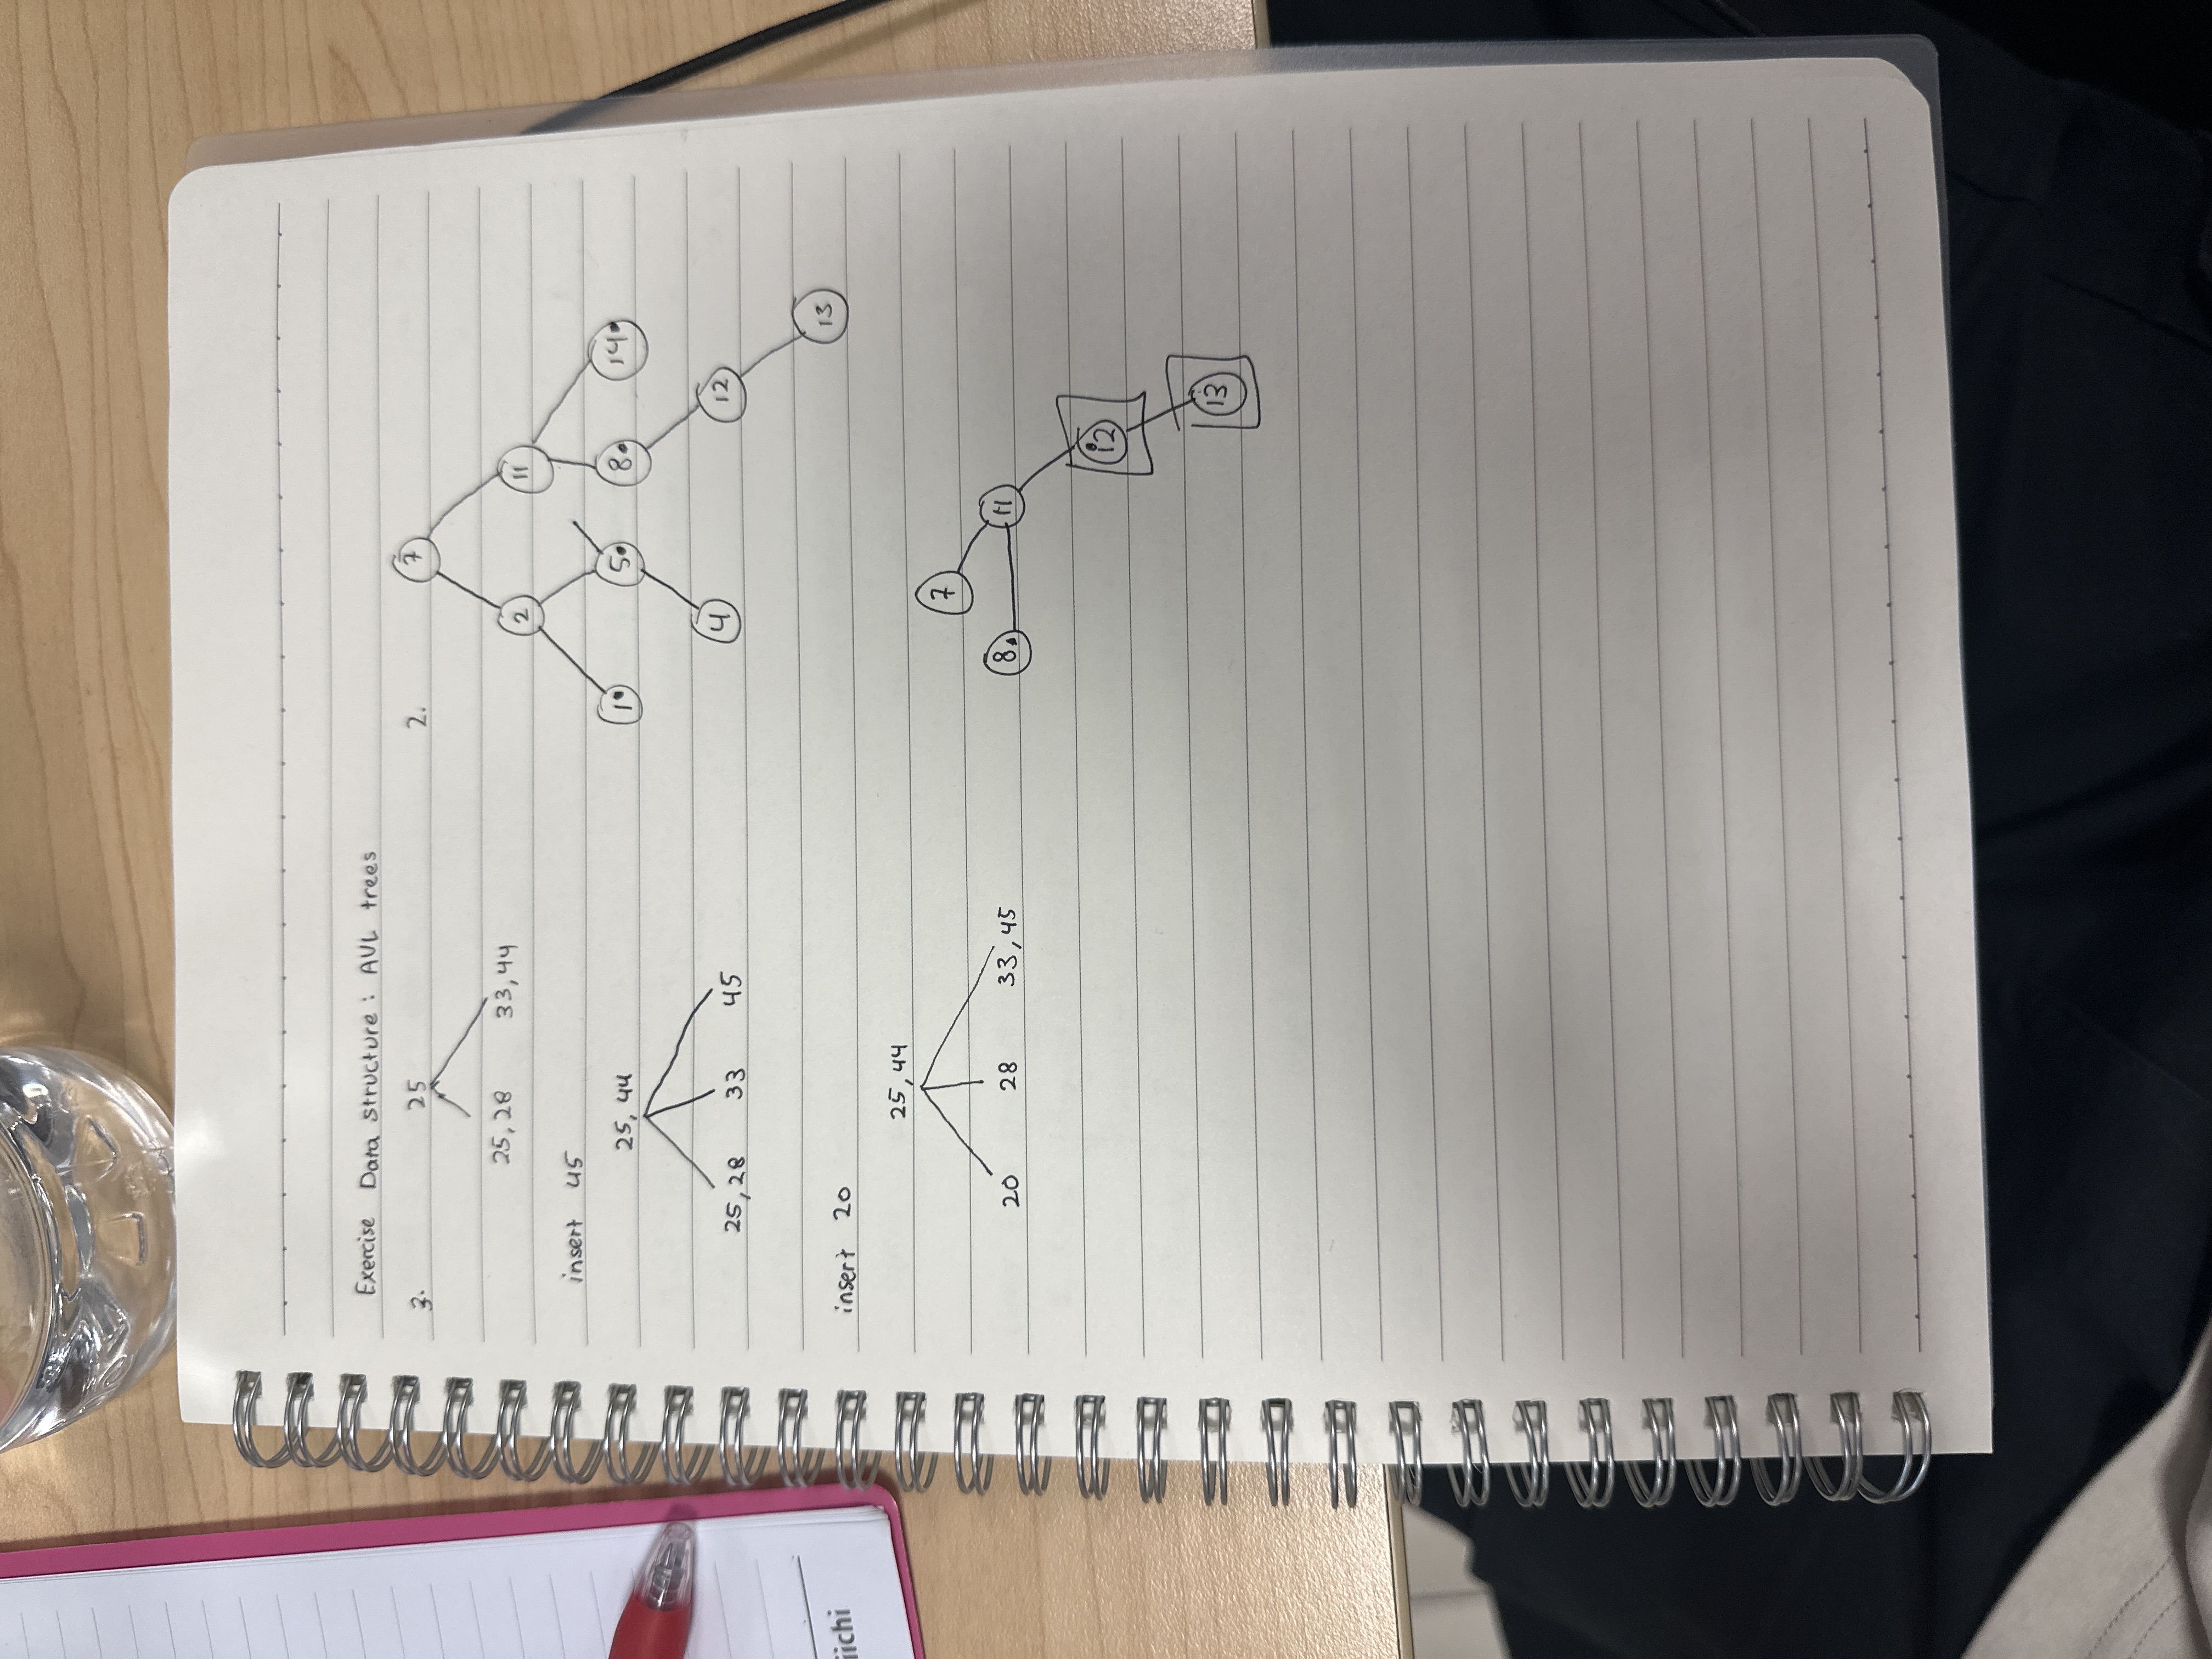 Exercise Data structure: AVL trees
3.
25
25, 28 33, 44
insert 45
25, 44
25, 28 33 45
insert 20
25, 44
20 28 33, 45
2.
7
2 11
1 5 8 14
4 12
13
7
8 11
12
13
iichi